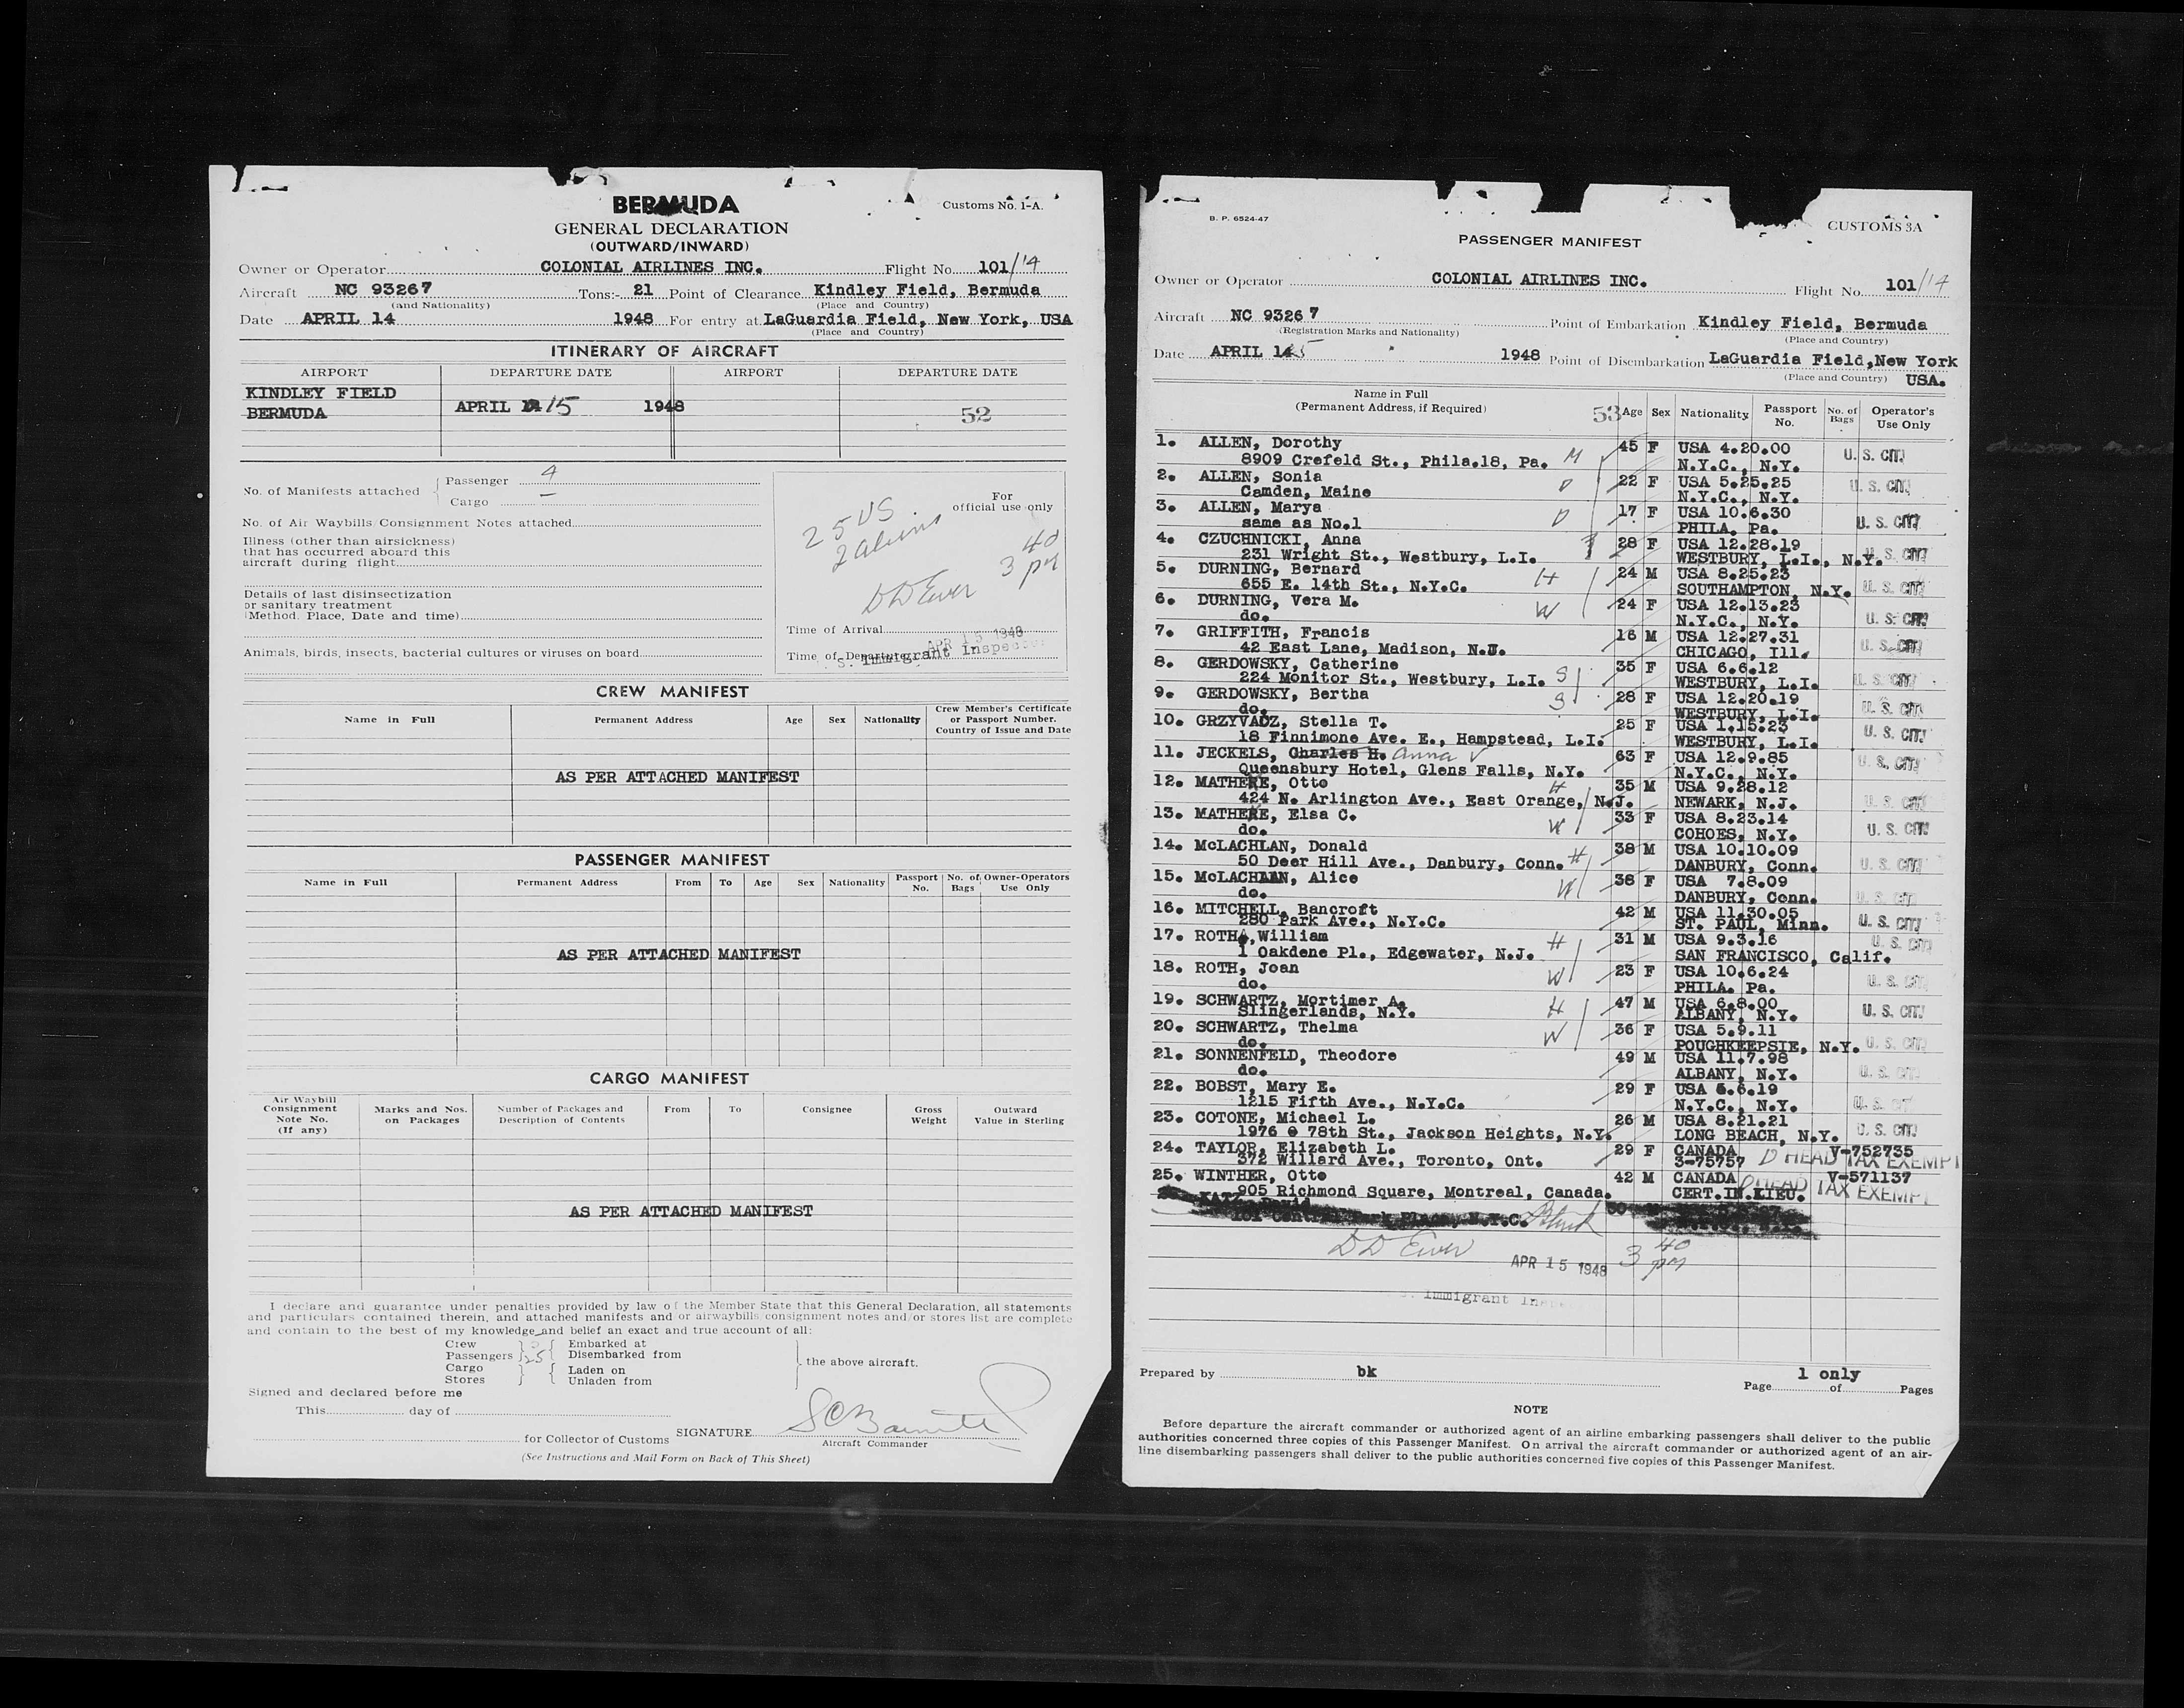 BERMUDA
Customs No. 1-A.
GENERAL DECLARATION
(OUTWARD/INWARD)
Owner or Operator COLONIAL AIRLINES INC. Flight No. 101/14
Aircraft NC 93267 Tons:- 21 Point of Clearance Kindley Field, Bermuda
(and Nationality) (Place and Country)
Date APRIL 14 1948 For entry at LaGuardia Field, New York, USA
(Place and Country)
ITINERARY OF AIRCRAFT
AIRPORT DEPARTURE DATE AIRPORT DEPARTURE DATE
KINDLEY FIELD
BERMUDA APRIL 15 1948 52
No. of Manifests attached Passenger 4
Cargo —
No. of Air Waybills/Consignment Notes attached
Illness (other than airsickness)
that has occurred aboard this
aircraft during flight
Details of last disinsectization
or sanitary treatment
(Method, Place, Date and time)
Animals, birds, insects, bacterial cultures or viruses on board
For
official use only
25 US
2 aliens
3 40 pm
DD Ewer
Time of Arrival
APR 15 1948
Time of Departure
U. S. Immigrant Inspector
CREW MANIFEST
Name in Full Permanent Address Age Sex Nationality Crew Member's Certificate
or Passport Number.
Country of Issue and Date
AS PER ATTACHED MANIFEST
PASSENGER MANIFEST
Name in Full Permanent Address From To Age Sex Nationality Passport No. No. of Bags Owner-Operators Use Only
AS PER ATTACHED MANIFEST
CARGO MANIFEST
Air Waybill
Consignment
Note No.
(If any)
Marks and Nos.
on Packages
Number of Packages and
Description of Contents
From To Consignee
Gross
Weight
Outward
Value in Sterling
AS PER ATTACHED MANIFEST
I declare and guarantee under penalties provided by law of the Member State that this General Declaration, all statements
and particulars contained therein, and attached manifests and or airwaybills/consignment notes and/or stores list are complete
and contain to the best of my knowledge and belief an exact and true account of all:
Crew Embarked at
Passengers 25 Disembarked from
the above aircraft.
Cargo Laden on
Stores Unladen from
Signed and declared before me
This day of
SIGNATURE
for Collector of Customs
Aircraft Commander
(See Instructions and Mail Form on Back of This Sheet)
B. P. 6524-47
CUSTOMS 3A
PASSENGER MANIFEST
Owner or Operator COLONIAL AIRLINES INC. Flight No. 101/14
Aircraft NC 93267 Point of Embarkation Kindley Field, Bermuda
(Registration Marks and Nationality) (Place and Country)
Date APRIL 15 1948 Point of Disembarkation LaGuardia Field,New York
(Place and Country) USA.
Name in Full
(Permanent Address, if Required) 53 Age Sex Nationality Passport No. No. of Bags Operator's Use Only
1. ALLEN, Dorothy 45 F USA 4.20.00 U. S. CIT.
8909 Crefeld St., Phila.18, Pa. M N.Y.C., N.Y.
2. ALLEN, Sonia 22 F USA 5.25.25 U. S. CIT.
Camden, Maine D N.Y.C., N.Y.
3. ALLEN, Marya 17 F USA 10.6.30 U. S. CIT.
same as No.1 D PHILA. Pa.
4. CZUCHNICKI, Anna 28 F USA 12.28.19 U. S. CIT.
231 Wright St., Westbury, L.I. WESTBURY, L.I., N.Y.
5. DURNING, Bernard 24 M USA 8.25.23 U. S. CIT.
655 E. 14th St., N.Y.C. H SOUTHAMPTON, N.Y.
6. DURNING, Vera M. 24 F USA 12.13.23 U. S. CIT.
do. W N.Y.C., N.Y.
7. GRIFFITH, Francis 16 M USA 12.27.31 U. S. CIT.
42 East Lane, Madison, N.J. CHICAGO, Ill.
8. GERDOWSKY, Catherine 35 F USA 6.6.12 U. S. CIT.
224 Monitor St., Westbury, L.I. S WESTBURY, L.I.
9. GERDOWSKY, Bertha 28 F USA 12.20.19 U. S. CIT.
do. S WESTBURY, L.I.
10. GRZYVADZ, Stella T. 25 F USA 1.15.23 U. S. CIT.
18 Finnimone Ave. E., Hampstead, L.I. WESTBURY, L.I.
11. JECKELS, Charles H. Anna 63 F USA 12.9.85 U. S. CIT.
Queensbury Hotel, Glens Falls, N.Y. N.Y.C., N.Y.
12. MATHERE, Otto H 35 M USA 9.28.12 U. S. CIT.
424 N. Arlington Ave., East Orange, N.J. NEWARK, N.J.
13. MATHERE, Elsa C. 33 F USA 8.23.14 U. S. CIT.
do. W COHOES, N.Y.
14. McLACHLAN, Donald 38 M USA 10.10.09 U. S. CIT.
50 Deer Hill Ave., Danbury, Conn. H DANBURY, Conn.
15. McLACHLAN, Alice 38 F USA 7.8.09 U. S. CIT.
do. W DANBURY, Conn.
16. MITCHELL, Bancroft 42 M USA 11.30.05 U. S. CIT.
280 Park Ave., N.Y.C. ST. PAUL, Minn.
17. ROTH, William H 31 M USA 9.3.16 U. S. CIT.
1 Oakdene Pl., Edgewater, N.J. SAN FRANCISCO, Calif.
18. ROTH, Joan 23 F USA 10.6.24 U. S. CIT.
do. W PHILA. Pa.
19. SCHWARTZ, Mortimer A. 47 M USA 6.8.00 U. S. CIT.
Slingerlands, N.Y. H ALBANY, N.Y.
20. SCHWARTZ, Thelma 36 F USA 5.9.11 U. S. CIT.
do. W POUGHKEEPSIE, N.Y.
21. SONNENFELD, Theodore 49 M USA 11.7.98 U. S. CIT.
do. ALBANY, N.Y.
22. BOBST, Mary E. 29 F USA 6.6.19 U. S. CIT.
1215 Fifth Ave., N.Y.C. N.Y.C., N.Y.
23. COTONE, Michael L. 26 M USA 8.21.21 U. S. CIT.
1976 78th St., Jackson Heights, N.Y. LONG BEACH, N.Y.
24. TAYLOR, Elizabeth L. 29 F CANADA V-752735
372 Willard Ave., Toronto, Ont. 3-75757 HEAD TAX EXEMPT
25. WINTHER, Otto 42 M CANADA V-571137
905 Richmond Square, Montreal, Canada. CERT.IN.LIEU. HEAD TAX EXEMPT
DD Ewer APR 15 1948 3 40 pm
Immigrant Inspector
Prepared by bk 1 only
Page of Pages
NOTE
Before departure the aircraft commander or authorized agent of an airline embarking passengers shall deliver to the public
authorities concerned three copies of this Passenger Manifest. On arrival the aircraft commander or authorized agent of an air-
line disembarking passengers shall deliver to the public authorities concerned five copies of this Passenger Manifest.